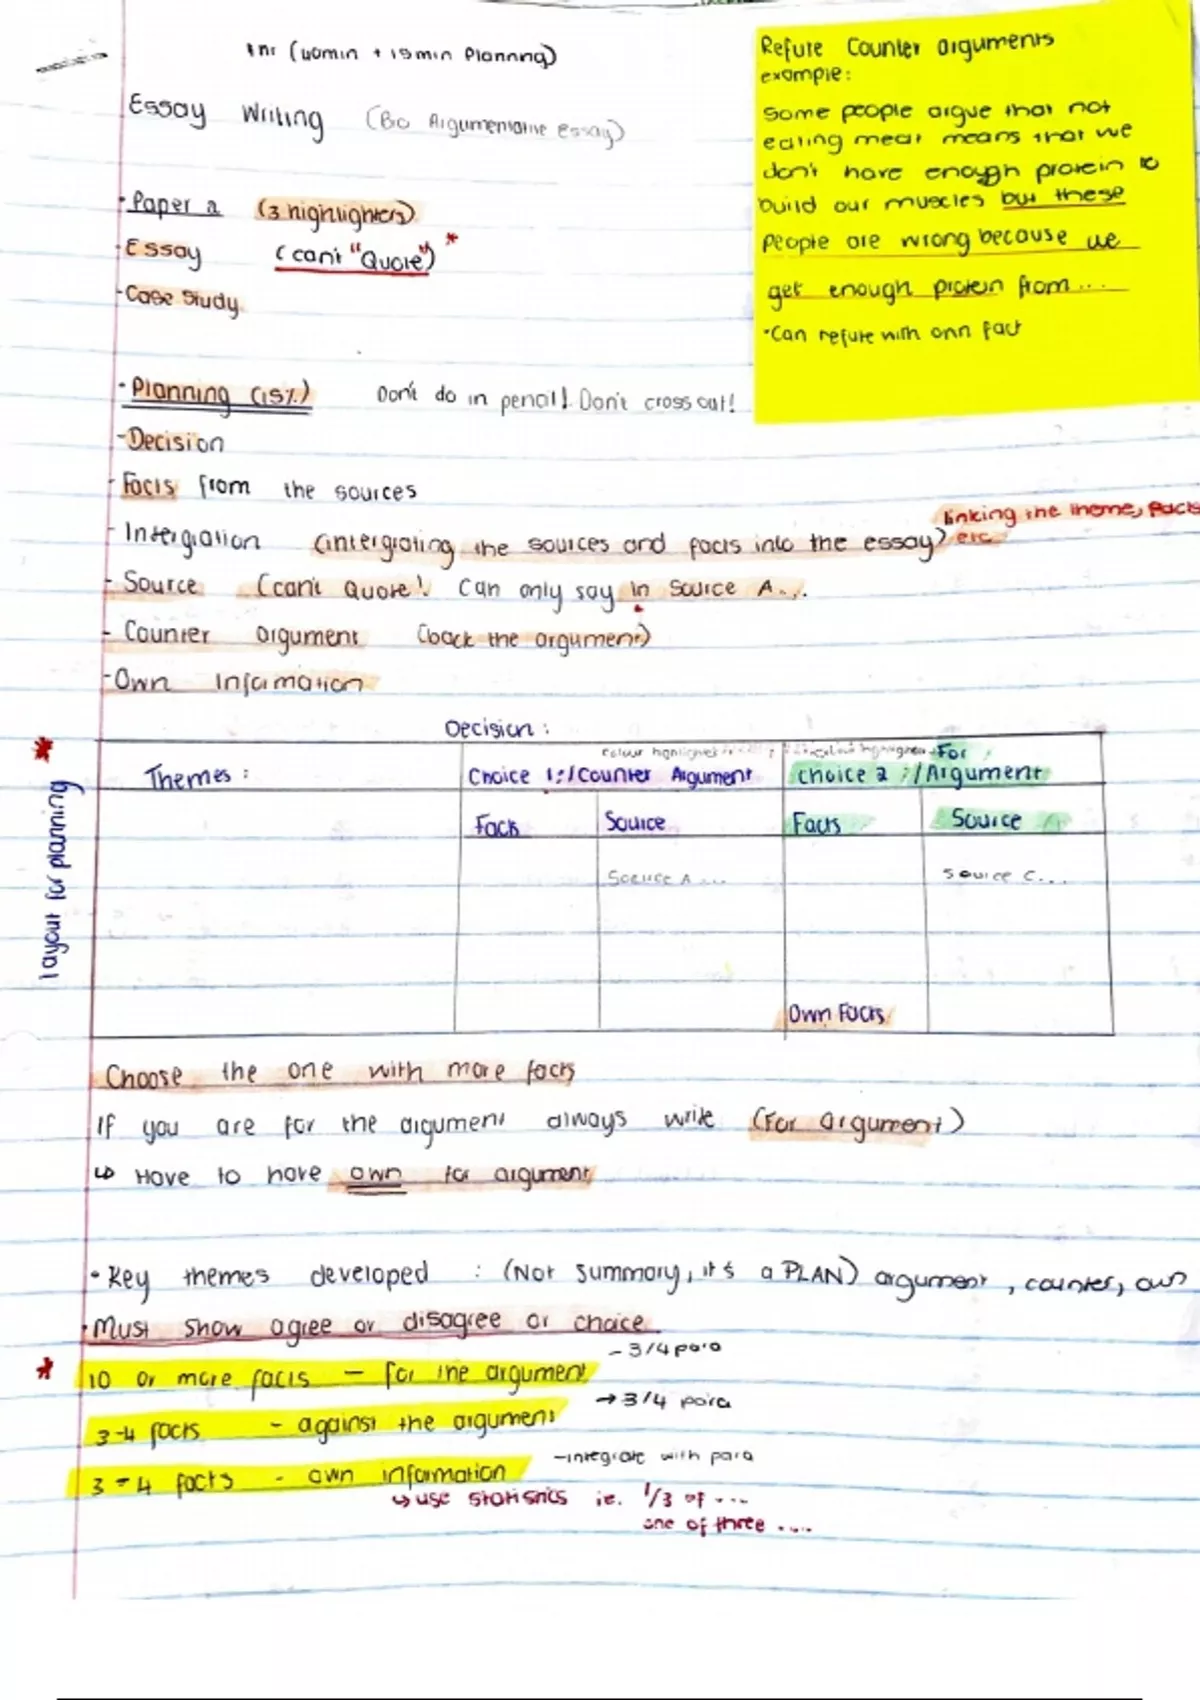 1hr (40min + 15min Planning)
Essay Writing (Bio Argumentative essay)
Refute Counter arguments
example:
Some people argue that not
eating meat means that we
don't have enough protein to
build our muscles but these
people are wrong because we
get enough protein from...
•Can refute with own fact
•Paper 2 (3 highlighters)
•Essay (can't "Quote") *
-Case Study
•Planning (15%) Don't do in pencil! Don't cross out!
-Decision
-Facts from the sources
linking the theme, facts
- Intergration (intergrating the sources and facts into the essay) etc
- Source (can't Quote! Can only say in Source A...
- Counter argument (back the argument)
-Own Information
* layout for planning
Decision :
Themes : Choice 1:/Counter Argument For choice 2 :/Argument
Facts Source Facts Source
Source A ... Source C...
Own Facts
Choose the one with more facts
If you are for the argument always write (For argument)
↳ Have to have own for argument
•Key themes developed : (Not Summary, it's a PLAN) argument, counter, own
•Must show agree or disagree or choice
* 10 or more facts — for the argument - 3/4 para
3-4 facts - against the argument → 3/4 para
3-4 facts - own information -integrate with para
↳ use statistics ie. 1/3 of ...
one of three ....